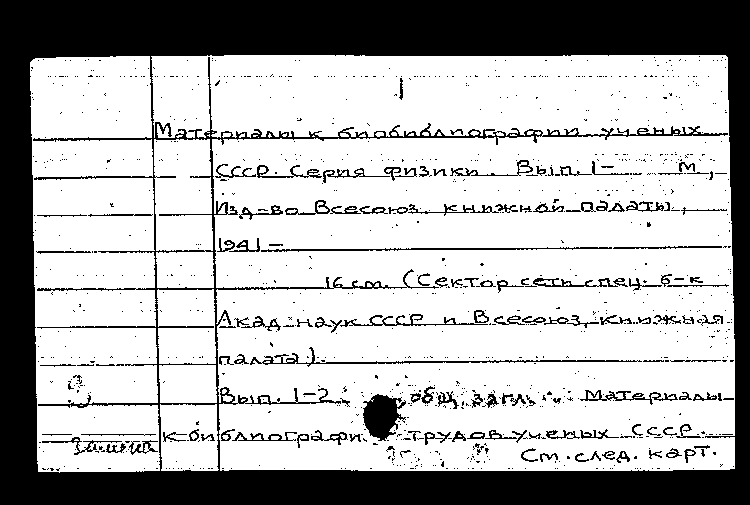 Материалы к биобиблиографии ученых
СССР. Серия физики. Вып. 1- М,
Изд-во Всесоюз. книжной палаты,
1941-
16 см. (Сектор сети спец. б-к
Акад. наук СССР и Всесоюз. книжная
палата).
Вып. 1-2 общ. загл.: Материалы
к библиографи трудов ученых СССР.
См. след. карт.